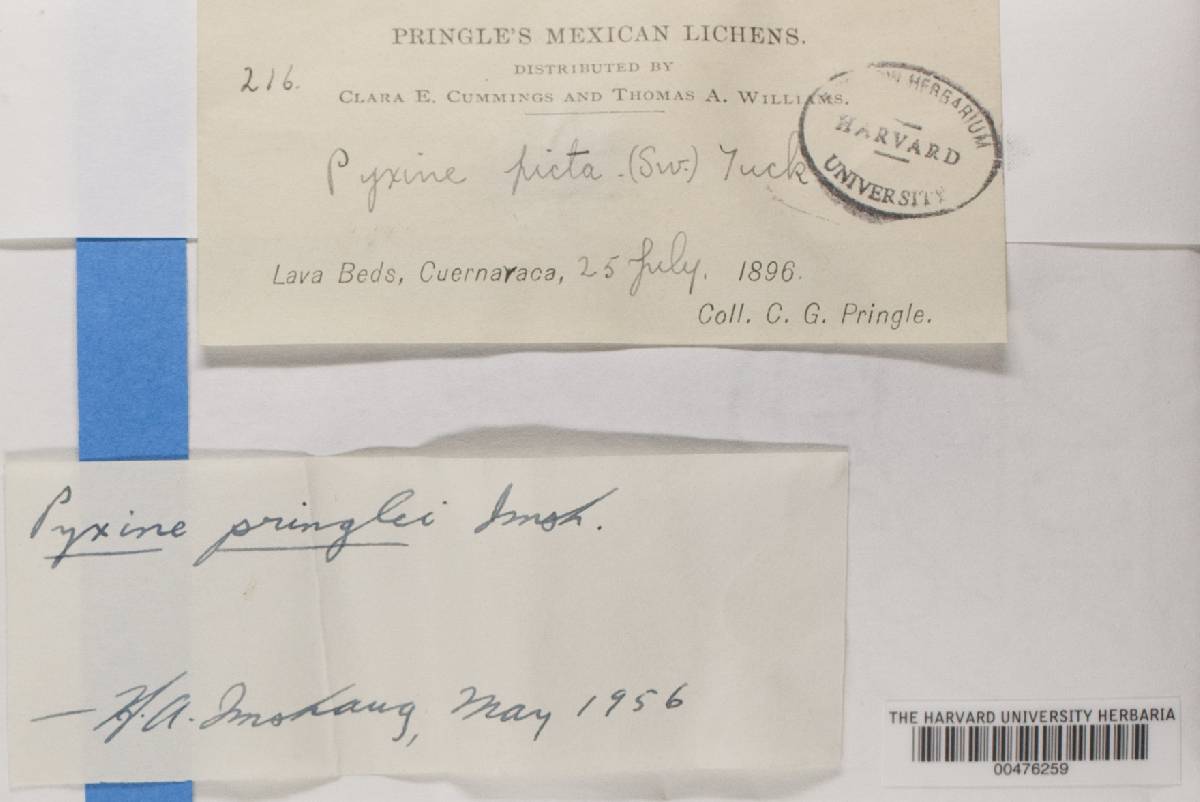 PRINGLE'S MEXICAN LICHENS.
DISTRIBUTED BY
216.
CLARA E. CUMMINGS AND THOMAS A. WILLIAMS.
HERBARIUM
HARVARD
UNIVERSITY
Pyxine picta (Sw.) Tuck
Lava Beds, Cuernavaca, 25 July. 1896.
Coll. C. G. Pringle.
Pyxine pringlei Imsh.
— H.A. Imshaug, May 1956
THE HARVARD UNIVERSITY HERBARIA
00476259